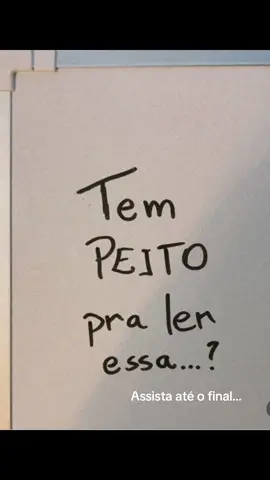 Tem
PEITO
pra ler
essa...?
Assista até o final...